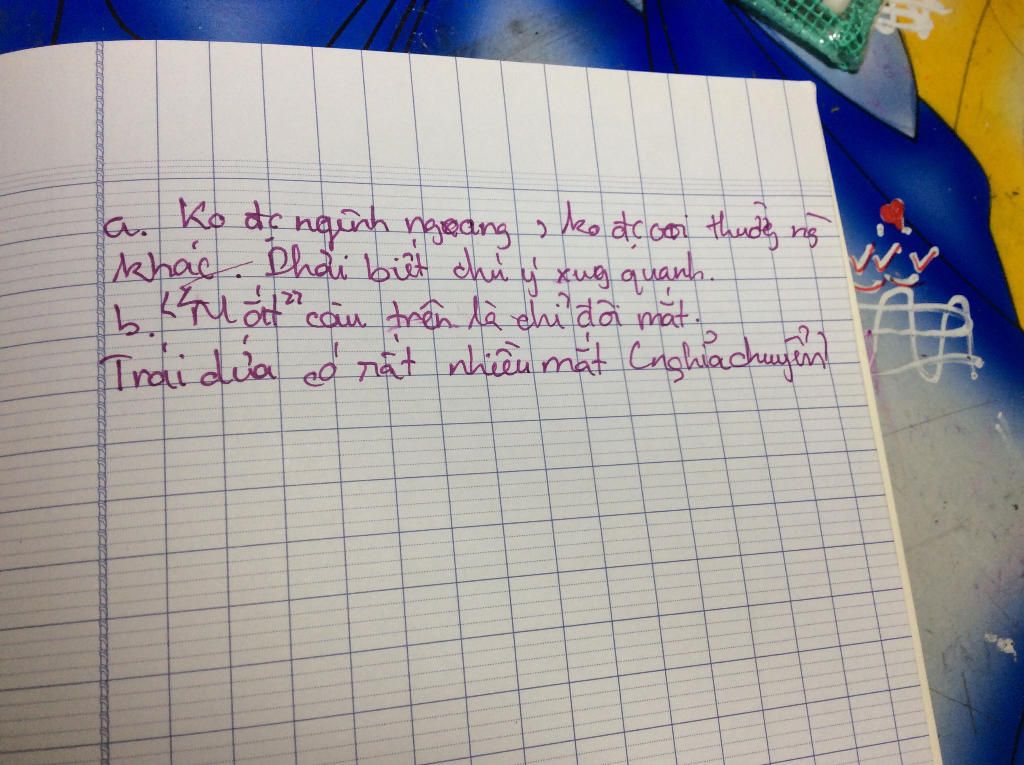 a. Ko đc nghênh ngoang, ko đc coi thường ng
khác. Phải biết chú ý xug quanh.
b. "Mắt" câu trên là chỉ đôi mắt.
Trái dứa có rất nhiều mắt (nghĩa chuyển)